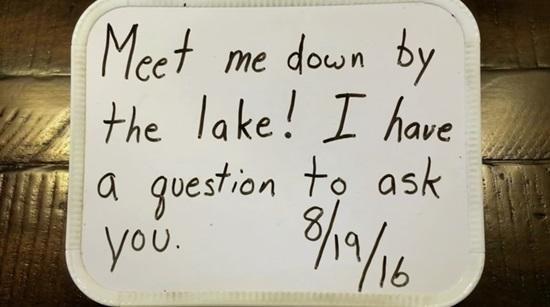 Meet me down by
the lake! I have
a question to ask
you.
8/19/16